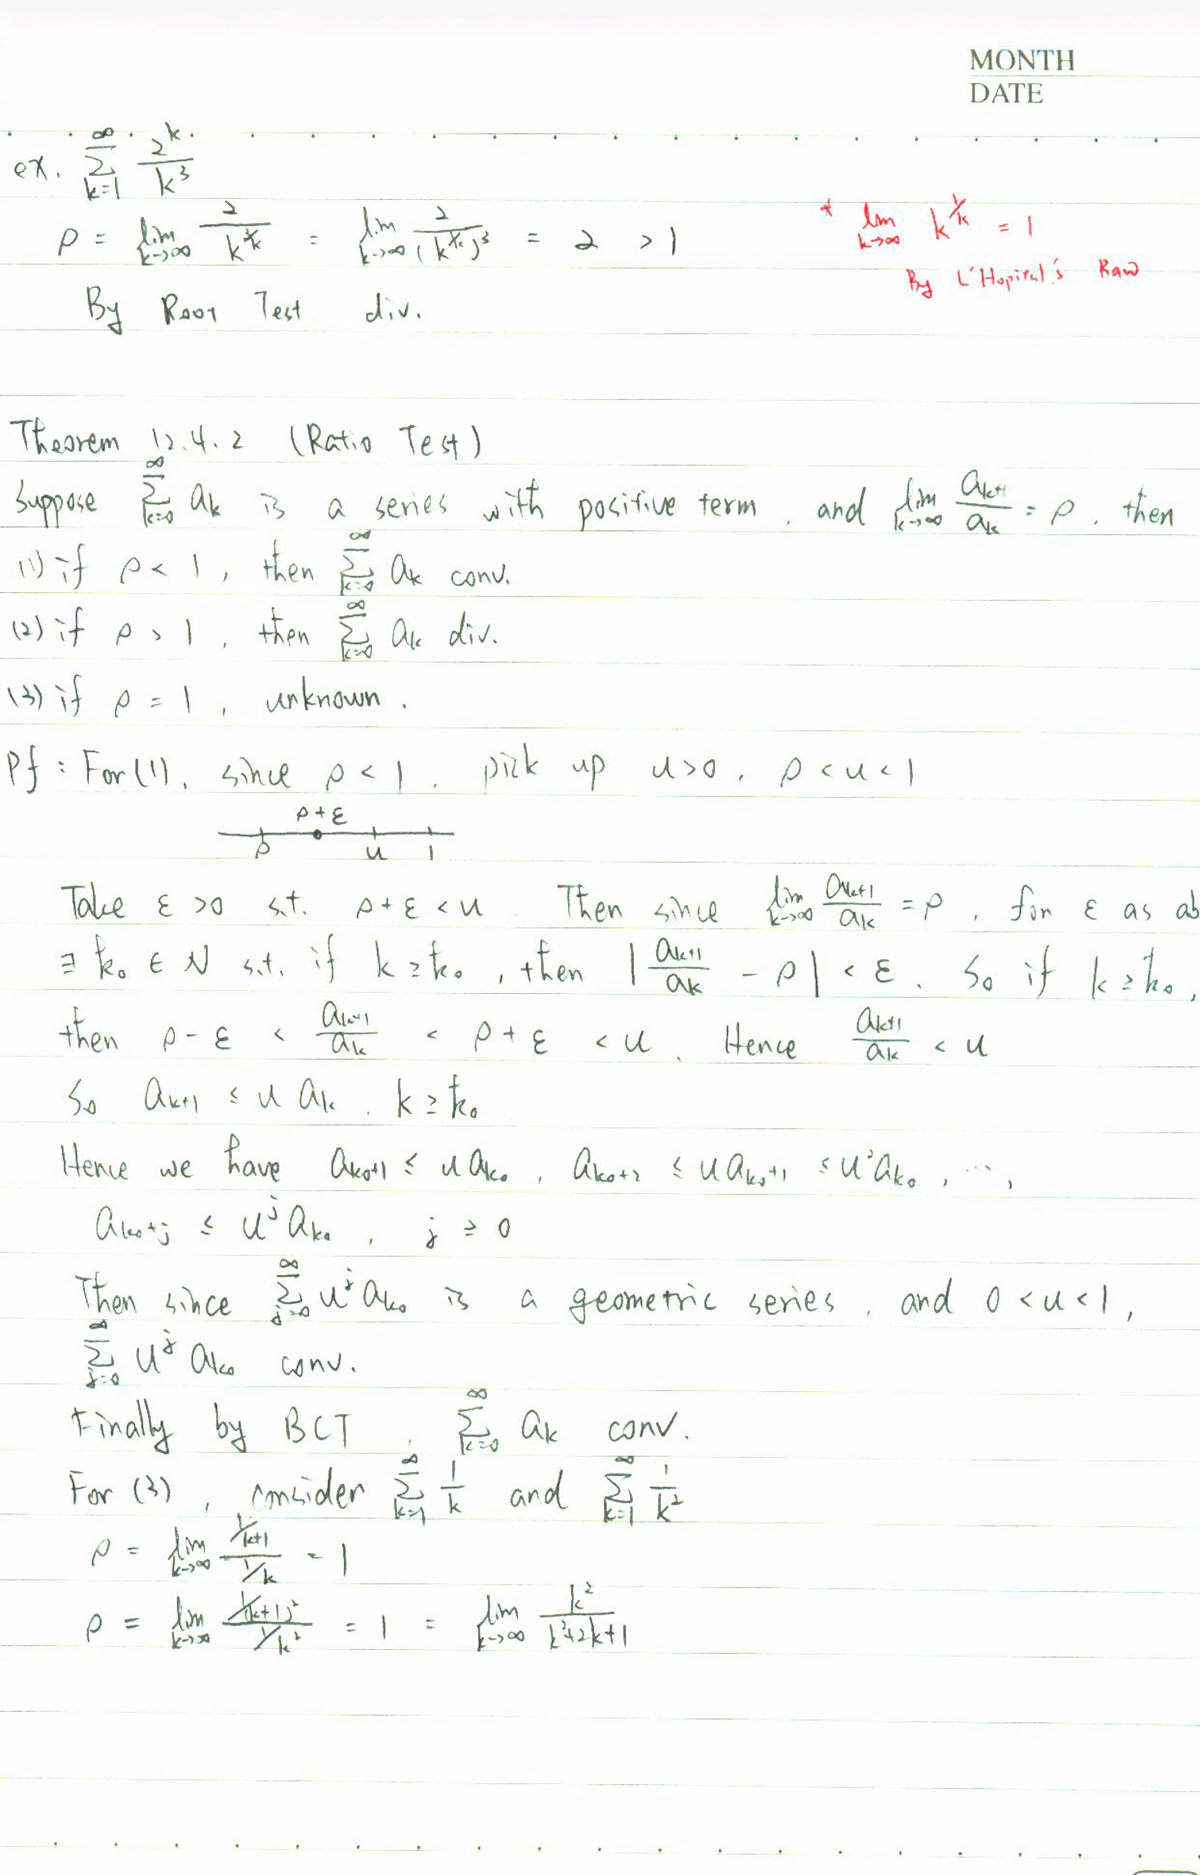 MONTH
DATE
ex. ∞Σk=1 2^k/k^3
ρ = lim k→∞ 2/k^{3/k} = lim k→∞ 2/(k^{1/k})^3 = 2 > 1
* lim k→∞ k^{1/k} = 1
By L'Hopital's Raw
By Root Test div.
Theorem 12.4.2 (Ratio Test)
Suppose ∞Σk=0 ak is a series with positive term, and lim k→∞ ak+1/ak = ρ, then
(1) if ρ < 1, then ∞Σk=0 ak conv.
(2) if ρ > 1, then ∞Σk=0 ak div.
(3) if ρ = 1, unknown.
Pf : For (1), since ρ < 1, pick up u>0, ρ < u < 1
ρ+ε
ρ u 1
Take ε >0 s.t. ρ+ε < u. Then since lim k→∞ ak+1/ak = ρ, for ε as ab
∃ k0 ∈ N s.t. if k ≥ k0, then |ak+1/ak - ρ| < ε. So if k ≥ k0,
then ρ-ε < ak+1/ak < ρ+ε < u. Hence ak+1/ak < u
So ak+1 ≤ u ak, k ≥ k0
Hence we have ak0+1 ≤ u ak0, ak0+2 ≤ u ak0+1 ≤ u^2 ak0, ...,
ak0+j ≤ u^j ak0, j ≥ 0
Then since ∞Σj=0 u^j ak0 is a geometric series, and 0 < u < 1,
∞Σj=0 u^j ak0 conv.
Finally by BCT, ∞Σk=0 ak conv.
For (3), consider ∞Σk=1 1/k and ∞Σk=1 1/k^2
ρ = lim k→∞ (1/k+1)/(1/k) = 1
ρ = lim k→∞ (1/(k+1)^2)/(1/k^2) = 1 = lim k→∞ k^2/(k^2+2k+1)